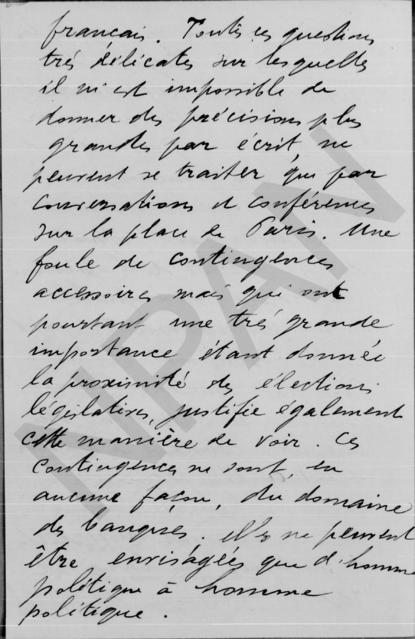 français. Toutes ces questions
très délicates sur lesquelles
il m'est impossible de
donner des précisions plus
grandes par écrit, ne
peuvent se traiter que par
conversations et conférences
sur la place de Paris. Une
foule de contingences
accessoires mais qui ont
pourtant une très grande
importance étant donnée
la proximité des élections
législatives, justifie également
cette manière de voir. Ces
contingences ne sont, en
aucune façon, du domaine
des banques. Elles ne peuvent
être envisagées que d'homme
politique à homme
politique.
NPAN